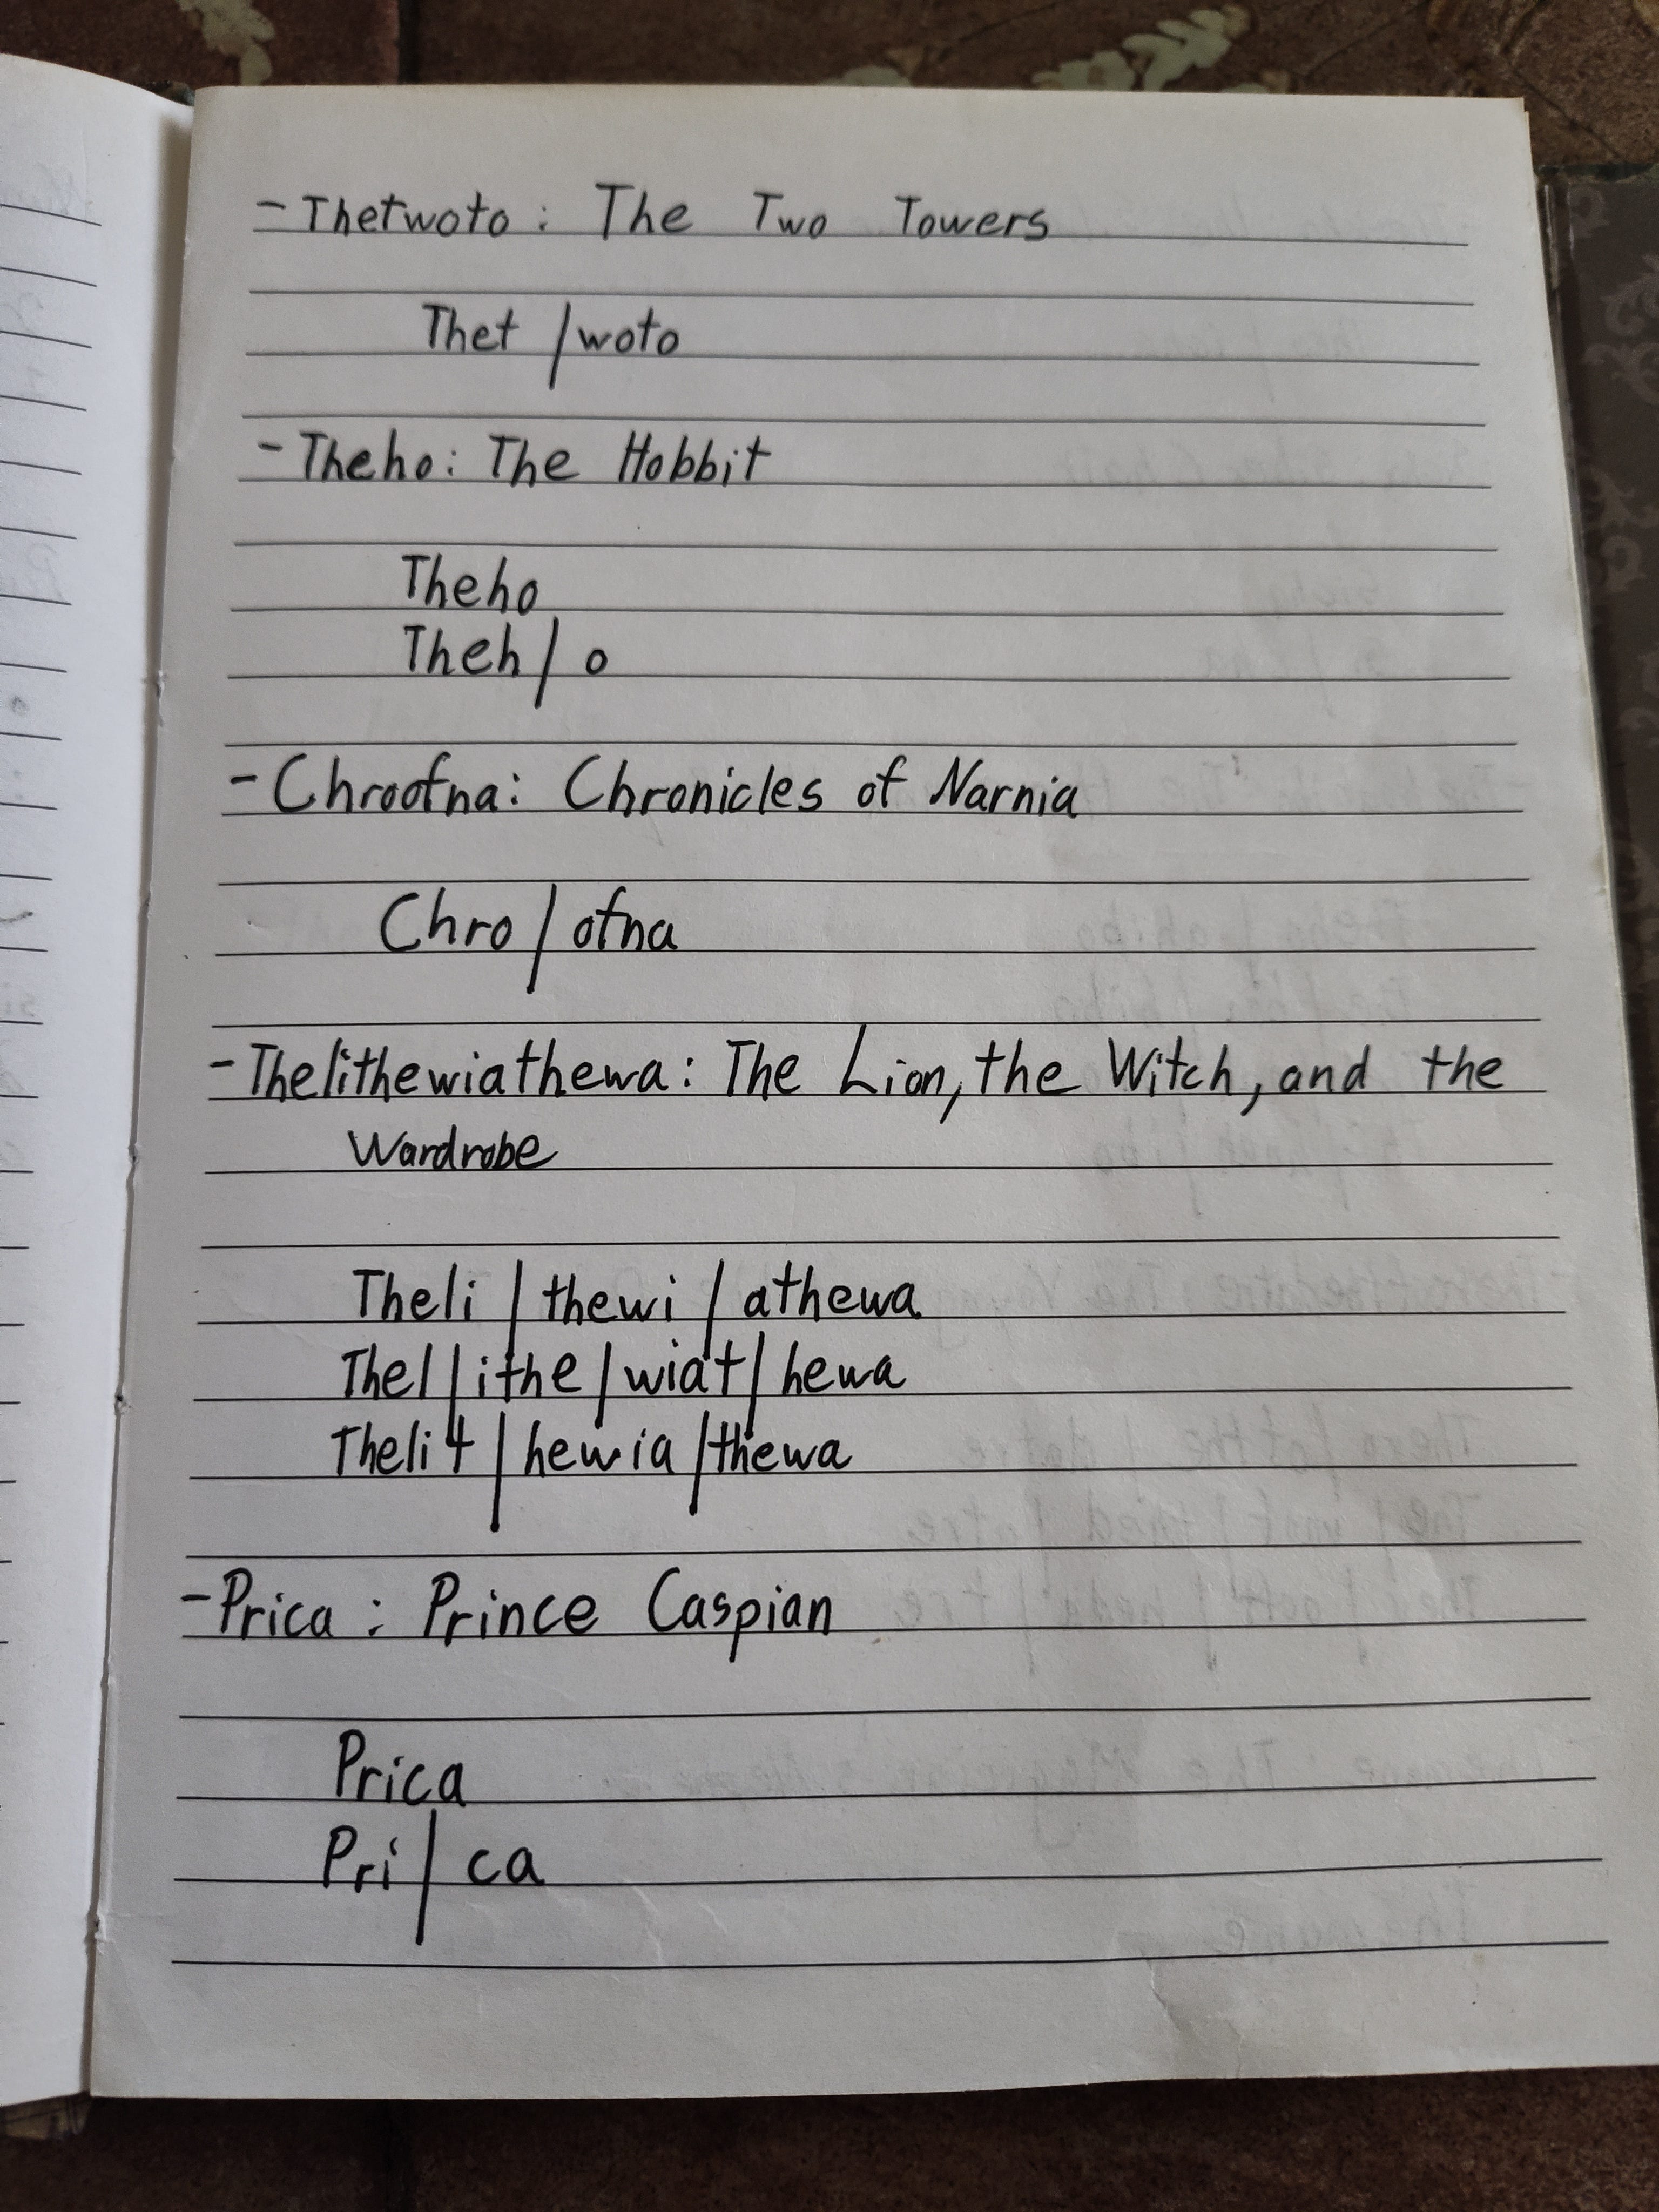 - Thetwoto : The Two Towers
Thet / woto
- Theho : The Hobbit
Theho
Theh / o
- Chroofna : Chronicles of Narnia
Chro / ofna
- Thelithewiathewa : The Lion, the Witch, and the
Wardrobe
Theli / thewi / athewa
Thel / ithe / wiat / hewa
Thelit / hewia / thewa
- Prica : Prince Caspian
Prica
Pri / ca